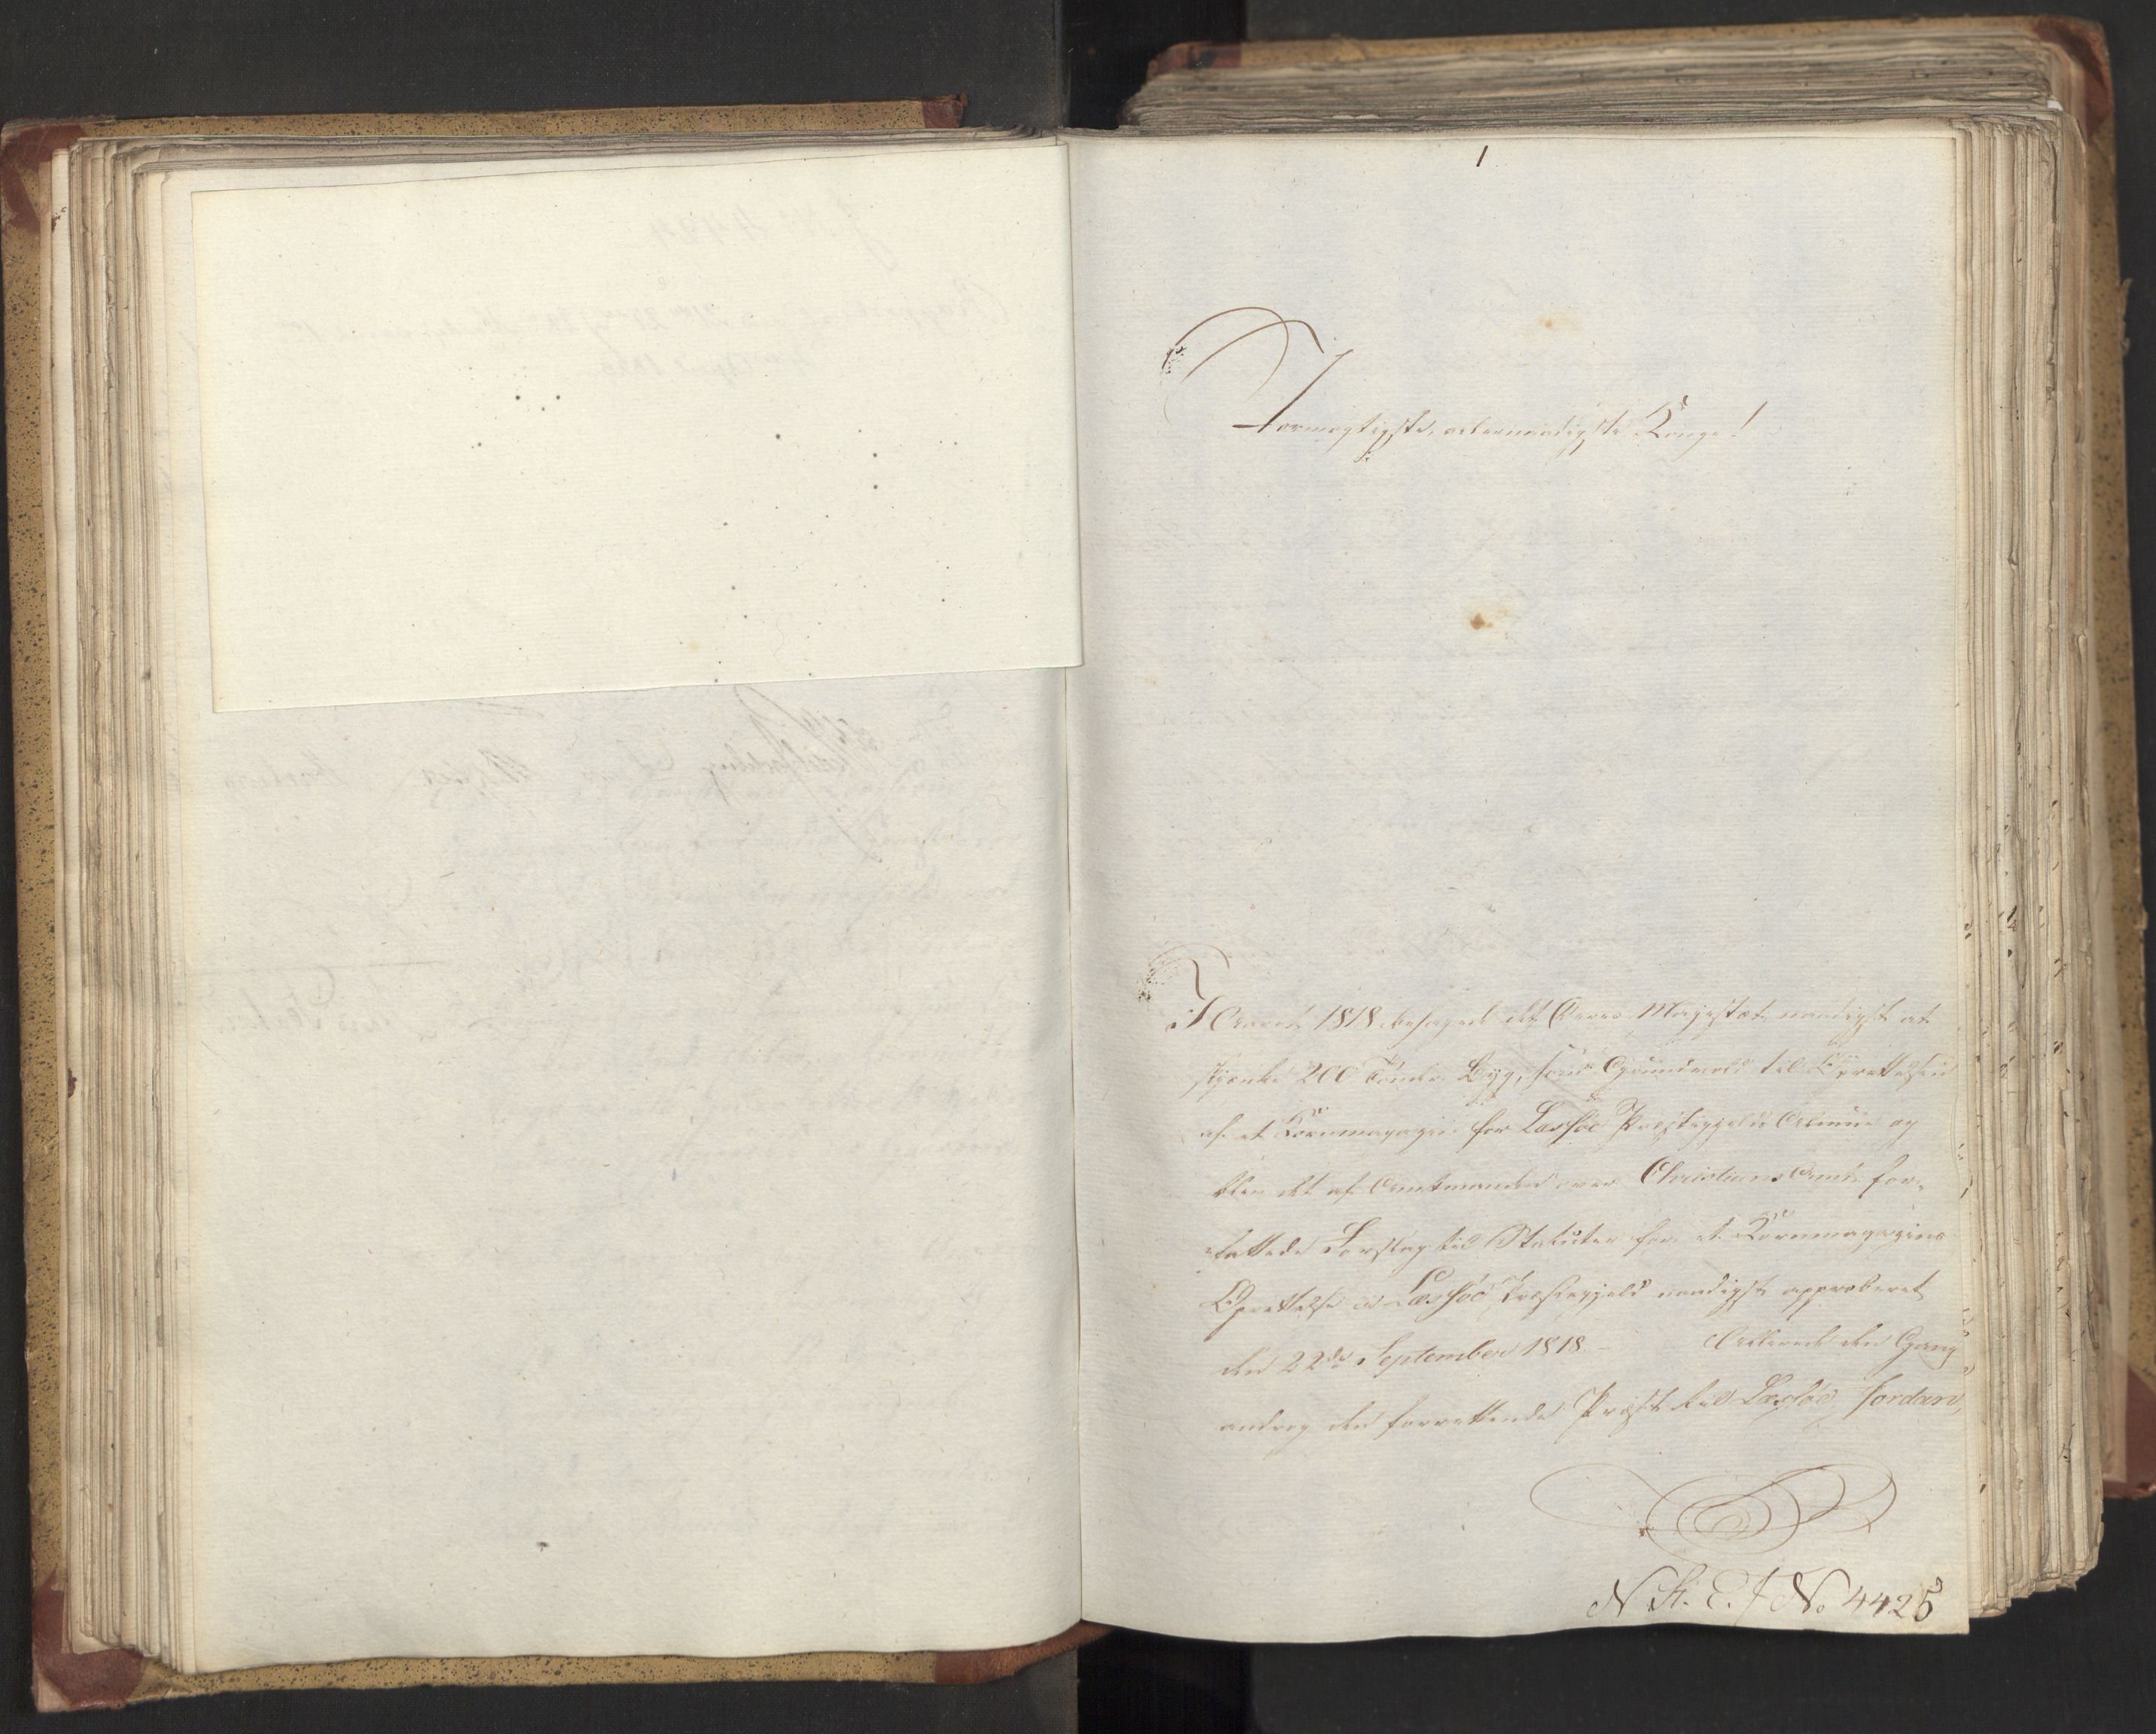 1
Stormægtigste, allernaadigste Konge!
I Aaret 1818 behagede det Deres Majestæt naadigst at
skjænke 200 Tønder Byg, som Grundvold til Oprettelsen
af et Kornmagazin for Læssøe Præstegjelds Almue og
blev det af Amtmanden over Christians Amt for-
fattede Forslag til Statuter for et Kornmagazins
Oprettelse i Læssøe Præstegjeld naadigst approberet
den 22de September 1818. – Allerede den Gang
androg den forrettende Præst til Læssøe, Jordan,
N. R. E. J No 4425